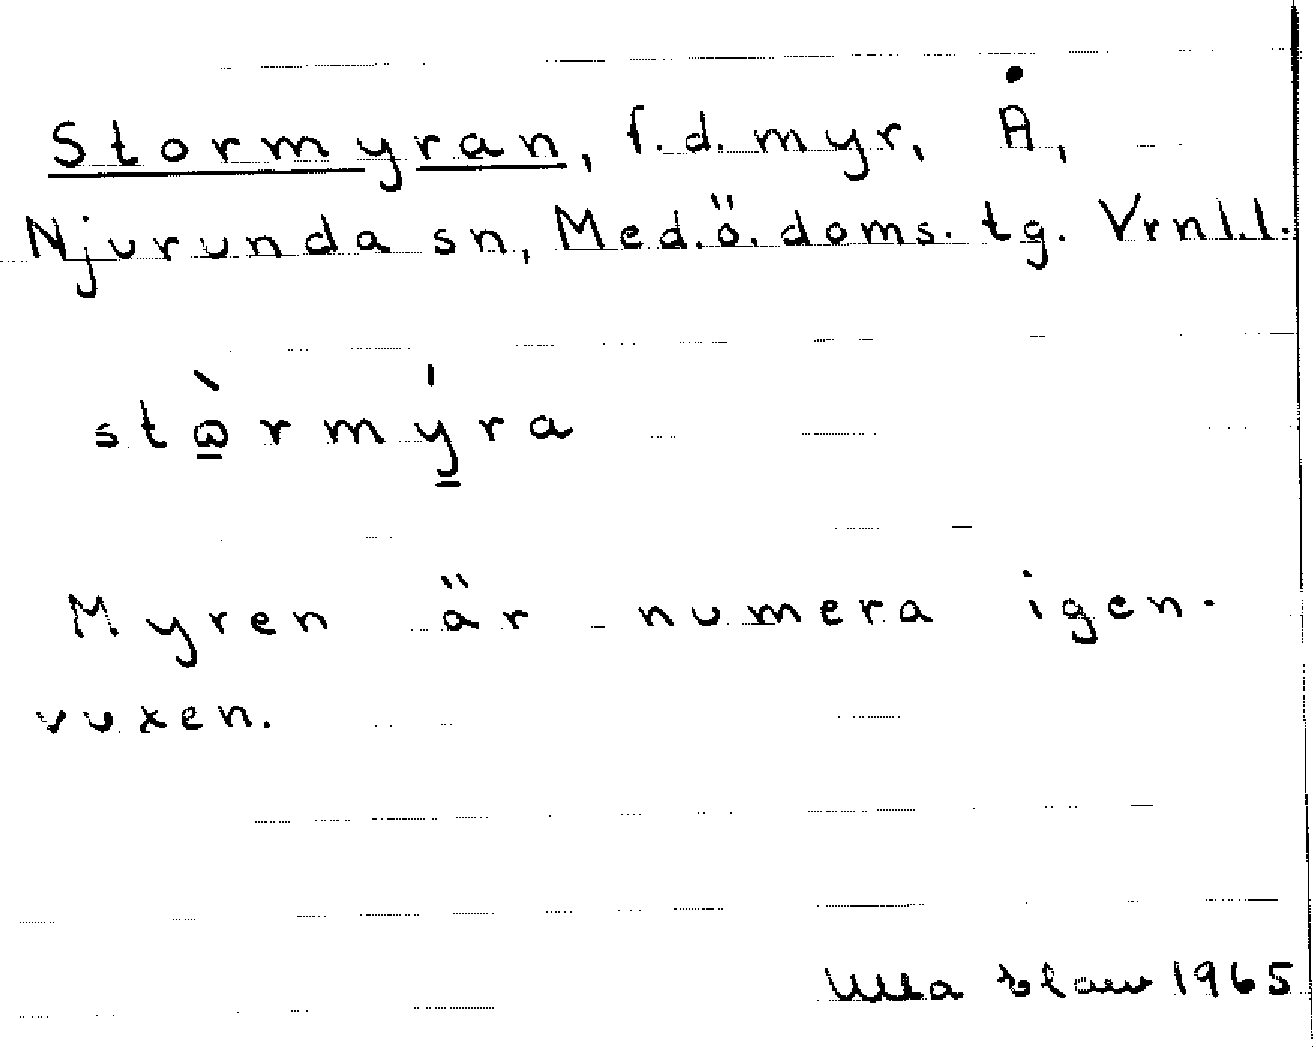 Stormyran, f.d. myr, Å,
Njurunda sn, Med.ö. doms. tg. Vrnl.l.
stὼ̱rmý̱ra
Myren är numera igen-
vuxen.
Ulla 1965